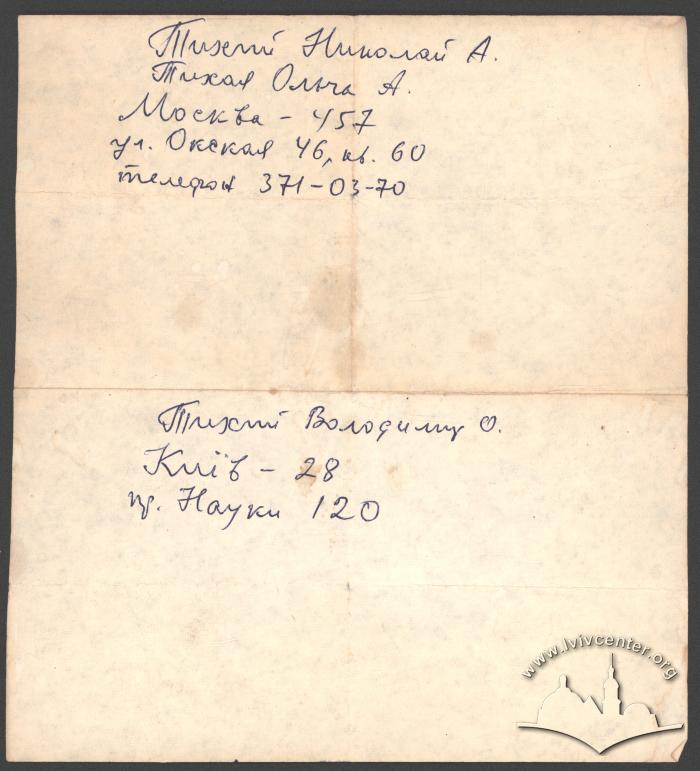 Тихий Николай А.
Тихая Ольга А.
Москва - 457
ул. Окская 46, кв. 60
телефон 371-03-70
Тихий Володимир О.
Київ - 28
пр. Науки 120
www.lvivcenter.org